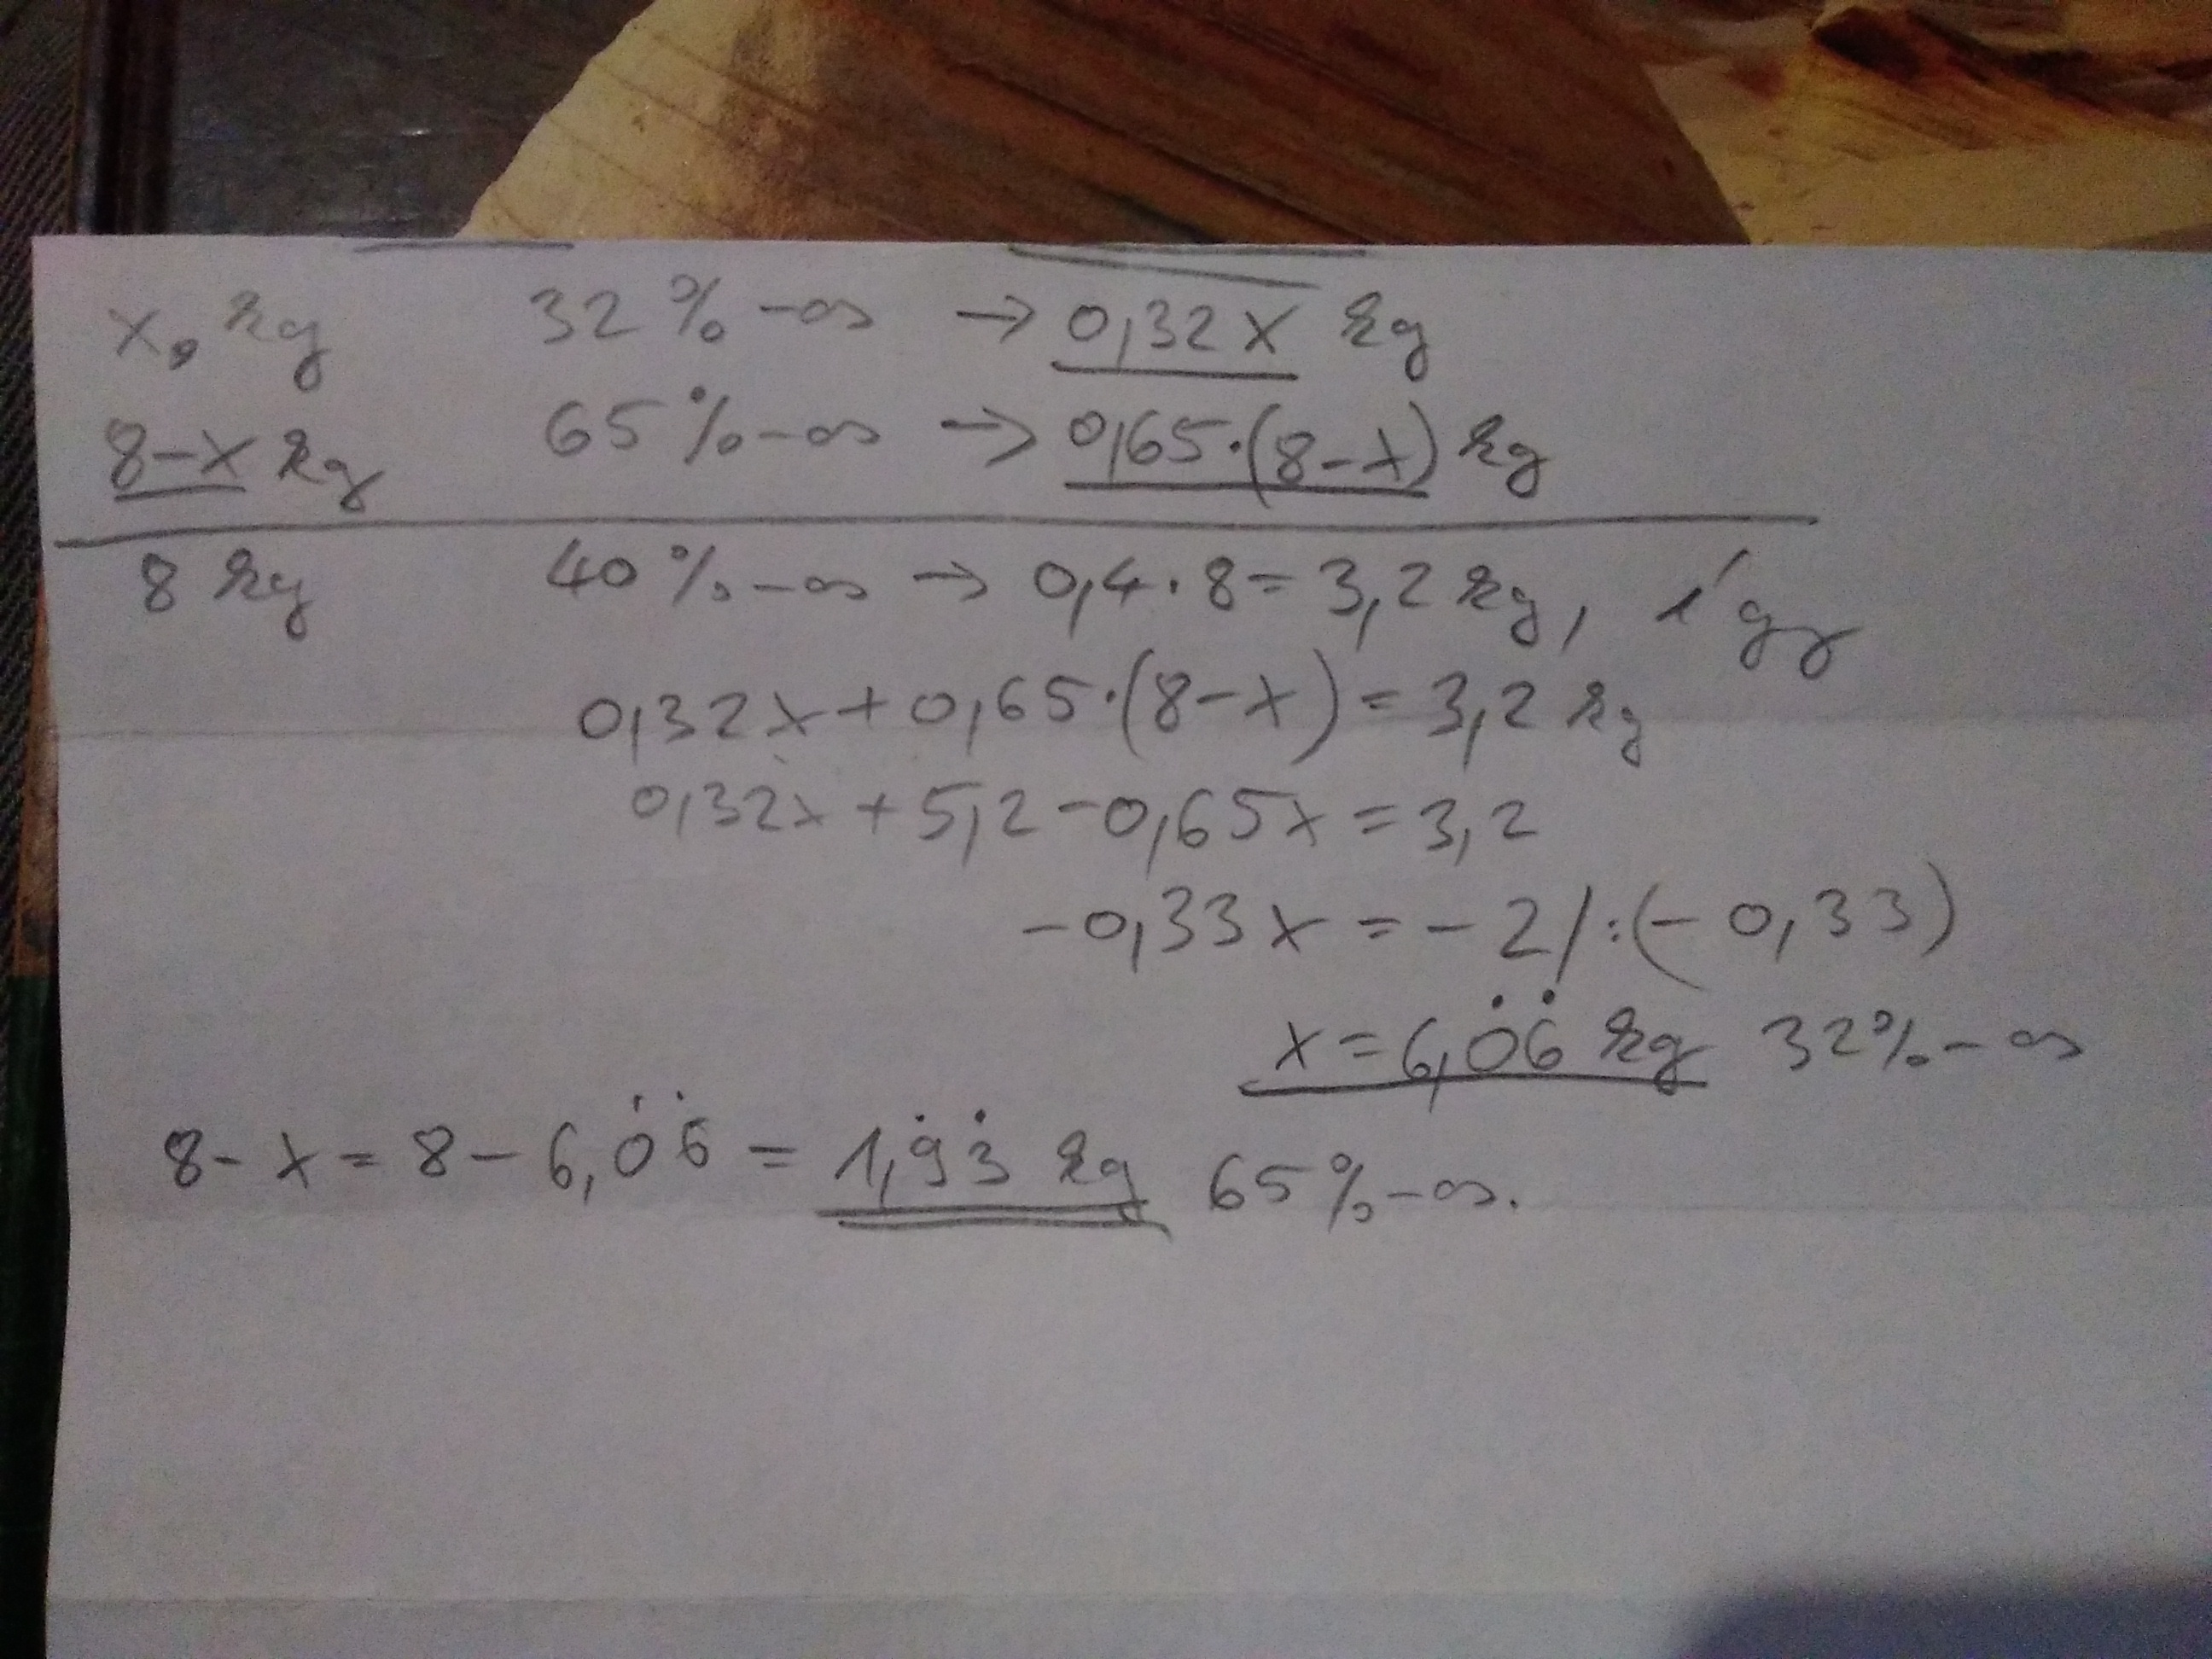 x, kg 32%-os → 0,32x kg
8-x kg 65%-os → 0,65·(8-x) kg
8 kg 40%-os → 0,4·8=3,2 kg, így
0,32x+0,65·(8-x)=3,2 kg
0,32x+5,2-0,65x=3,2
-0,33x=-2/:(-0,33)
x=6,0̇6̇ kg 32%-os
8-x=8-6,0̇6̇=1,9̇3̇ kg 65%-os.